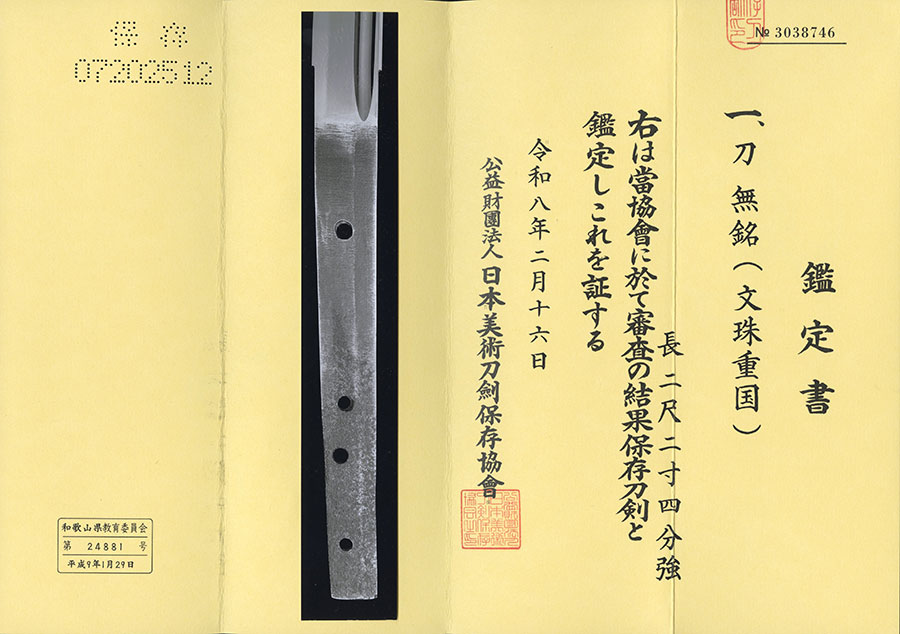 № 3038746
鑑定書
一、刀 無銘(文珠重国)
長 二尺二寸四分強
右は當協會に於て審査の結果保存刀剣と
鑑定しこれを証する
令和八年二月十六日
公益財團法人 日本美術刀劍保存協會
保存
07202512
和歌山県教育委員会
第 24881 号
平成9年1月29日